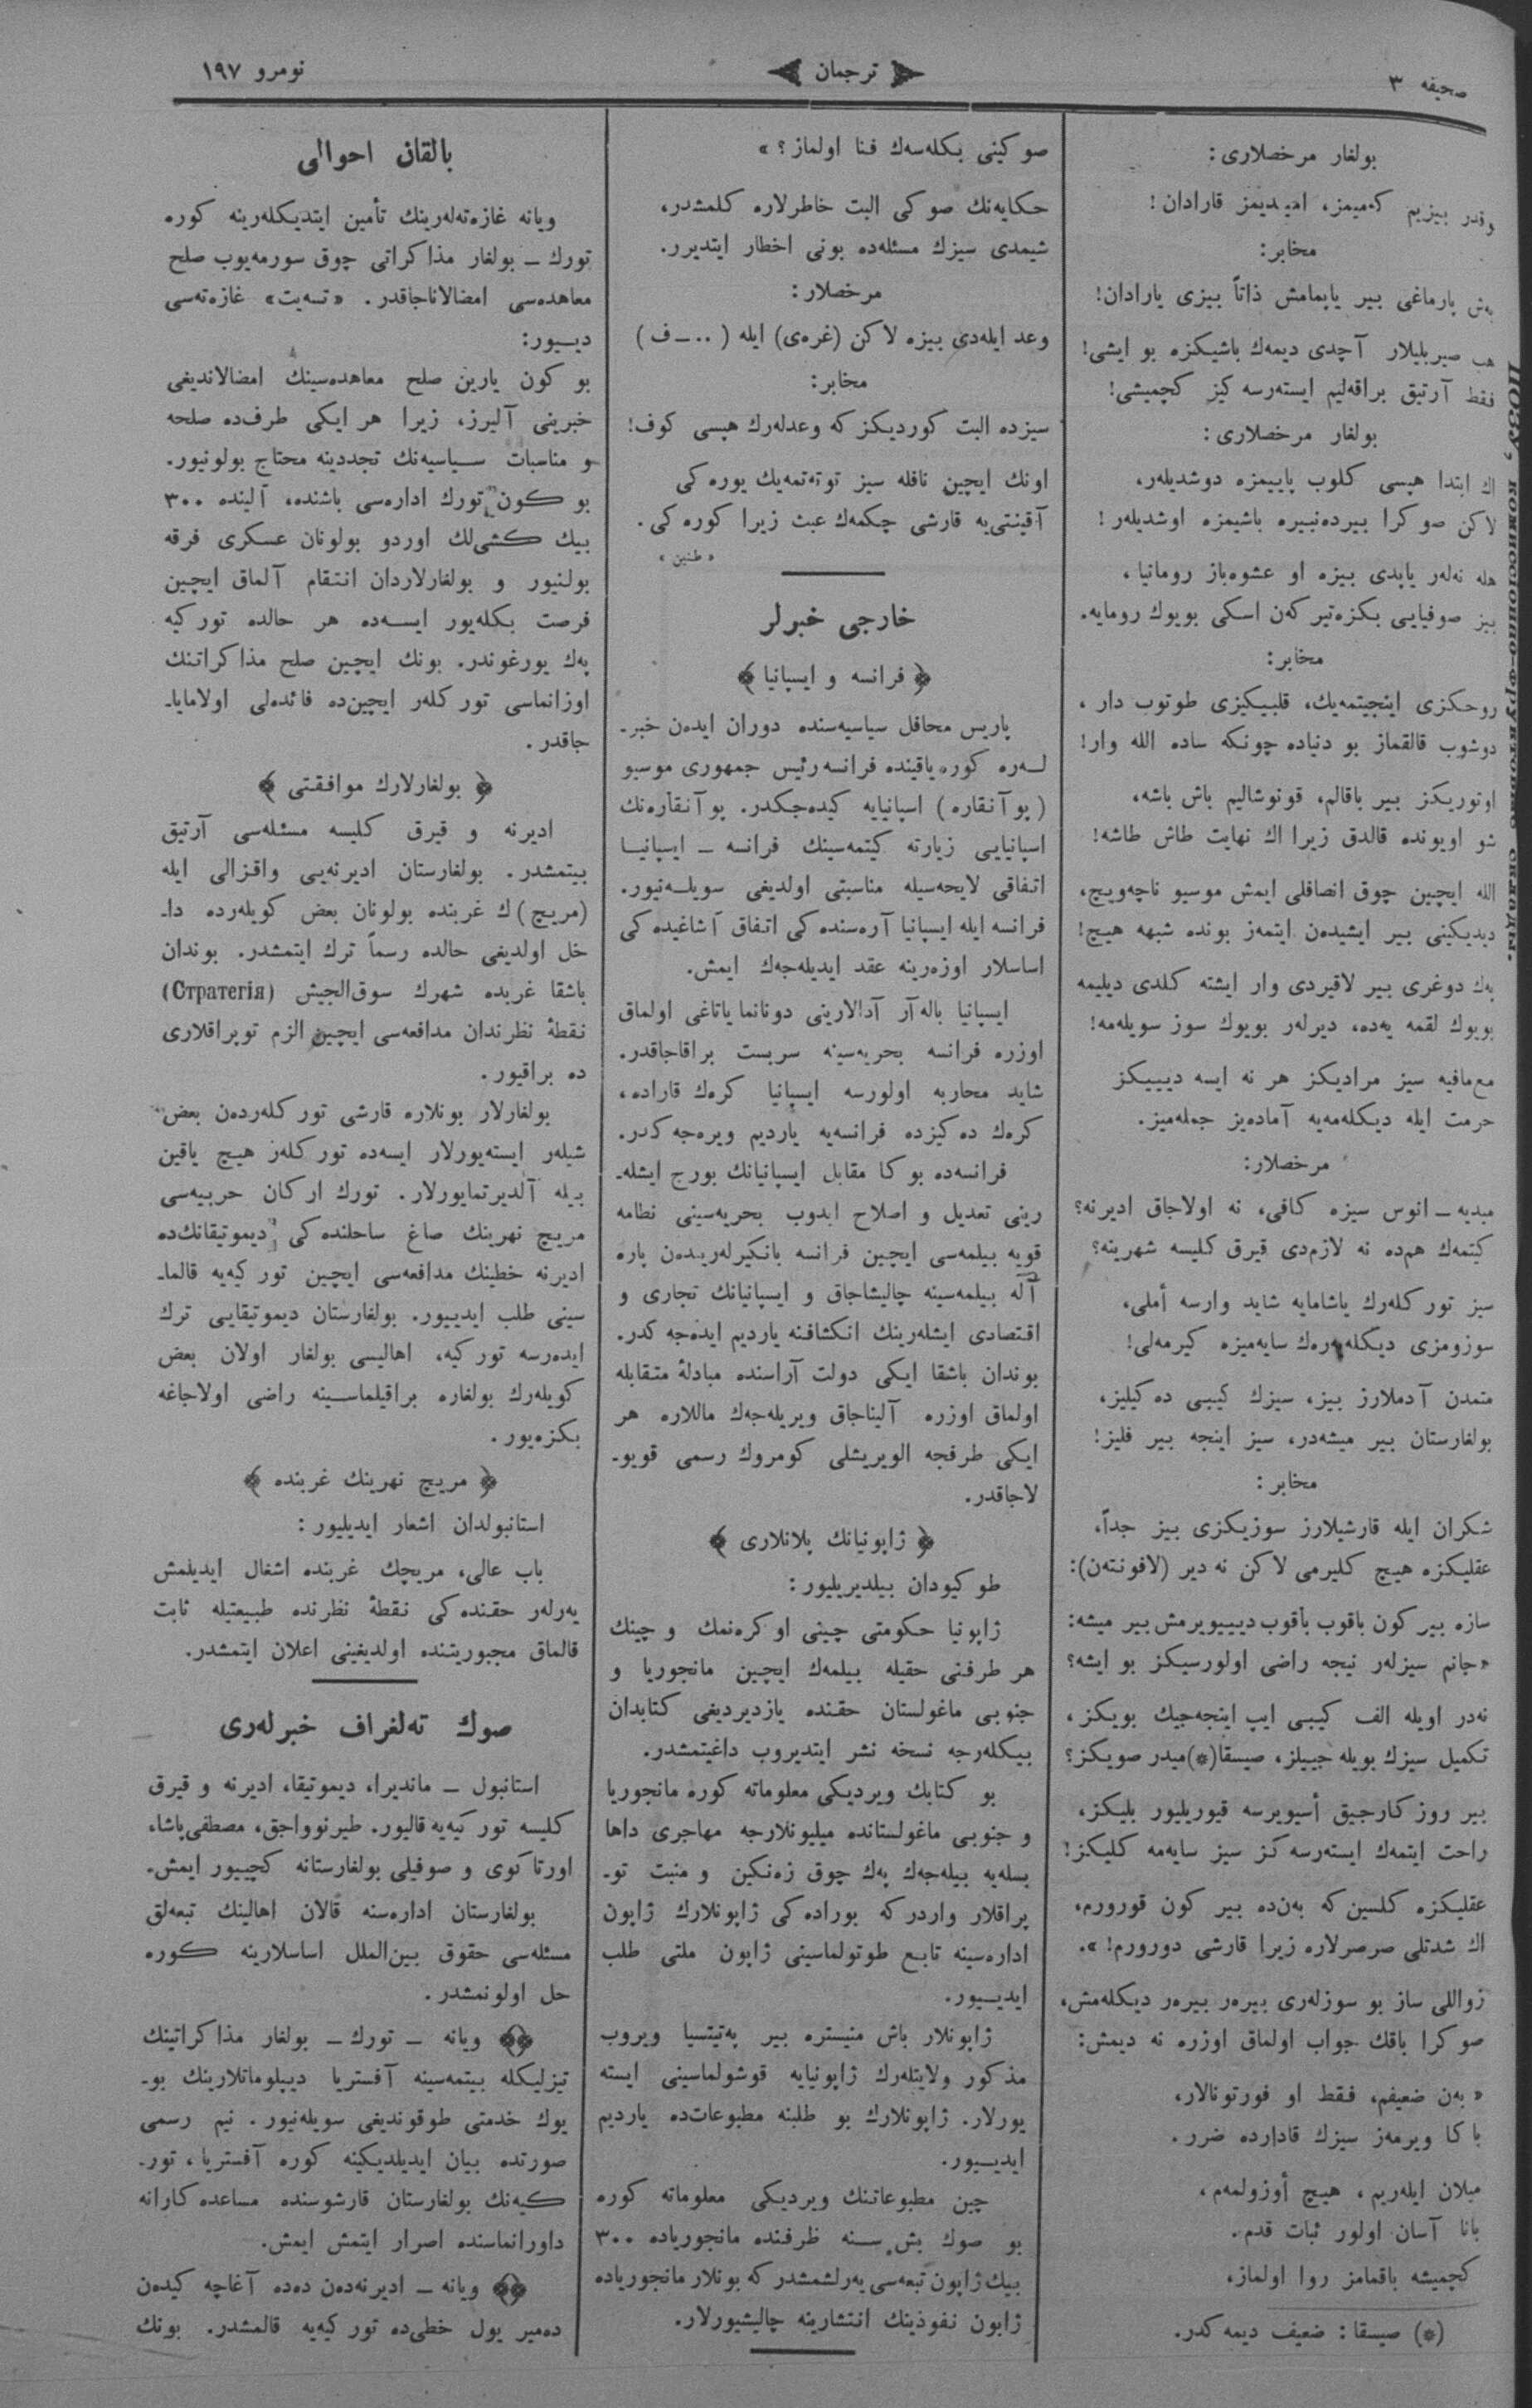 صحیفه ۳
ترجمان
نومرو ۱۹۷
بولغار مرخصلاری:
وقدر بیزیم كمیمز، امیدیمز قارادان!
مخابر:
بەش پارماغی بیر یاپمامش ذاتاً بیزی یارادان!
هب صیریلیلار آچدی دیمەك باشیكزه بو ایشی!
فقط آرتیق براقەلیم ایستەرسه كیز كچمیشی!
بولغار مرخصلاری:
اك ابتدا هپسی كلوب پاییمزه دوشدیلەر،
لاكن صوكرا بیردەنبیره باشیمزه اوشدیلەر!
هله نەلەر یاپدی بیزه او عشوەباز رومانیا،
بیز صوفیایی بكزەتیركەن اسكی بویوك رومایه.
مخابر:
روحكزی اینجیتمەیك، قلبیكیزی طوتوب دار،
دوشوب قالقماز بو دنیاده چونكه ساده الله وار!
اوتوریكز بیر باقالم، قونوشالیم باش باشه،
شو اویونده قالدق زیرا اك نهایت طاش طاشه!
الله ایچین چوق انصافلی ایمش موسیو ناچەویچ،
دیدیكینی بیر ایشیدەن ایتمەز بونده شبهه هیچ!
پەك دوغری بیر لاقیردی وار ایشته كلدی دیلیمه
بویوك لقمه یەده، دیرلەر بویوك سوز سویلەمه!
مع‌مافیه سیز مرادیكز هر نه ایسه دیییكز
حرمت ایله دیكلەمەیه آمادەیز جملەمیز.
مرخصلار:
میدیه ـ انوس سیزه كافی، نه اولاجاق ادیرنه؟
كیتمەك هم‌ده نه لازم‌دی قیرق كلیسه شهرینه؟
سیز توركلەرك یاشامایه شاید وارسه أملی،
سوزومزی دیكلەیەرەك سایەمیزه كیرمەلی!
متمدن آدملارز بیز، سیزك كیبی دەكیلیز،
بولغارستان بیر میشەدر، سیز اینجه بیر فلیز!
مخابر:
شكران ایله قارشیلارز سوزیكزی بیز جداً،
عقلیكزه هیچ كلیرمی لاكن نه دیر (لافونتەن):
سازه بیر كون باقوب باقوب دیییویرمش بیر میشه:
«جانم سیزلەر نیجه راضی اولورسیكز بو ایشه؟
نەدر اویله الف كیبی ایپ اینجەجیك بویكز،
تكمیل سیزك بویله جیبیلز، صیسقا(*)میدر صویكز؟
بیر روزكارجیق أسیویرسه قیوریلیور بلیكز،
راحت ایتمەك ایستەرسەكز سیز سایەمه كلیكز!
عقلیكزه كلسین كه بەن‌ده بیر كون قورورم،
اك شدتلی صرصرلاره زیرا قارشی دورورم!».
زواللی ساز بو سوزلەری بیرەر بیرەر دیكلەمش،
صوكرا باقك جواب اولماق اوزره نه دیمش:
«بەن ضعیفم، فقط او فورتونالار،
باكا ویرمەز سیزك قادارده ضرر.
میلان ایلەریم، هیچ أوزولمەم،
بانا آسان اولور ثبات قدم.
كچمیشه باقمامز روا اولماز،
(*) صیسقا: ضعیف دیمەكدر.
صوكینی بكلەسەك فنا اولماز؟»
حكایەنك صوكی البت خاطرلاره كلمشدر،
شیمدی سیزك مسئلەده بونی اخطار ایتدیرر.
مرخصلار:
وعد ایلەدی بیزه لاكن (غرەی) ایله (..ـ ف)
مخابر:
سیزده البت كوردیكز كه وعدلەرك هپسی كوف!
اونك ایچین نافله سیز توتەتمەیك یورەكی
آقینتی‌یه قارشی چكمەك عبث زیرا كورەكی.
«طنین»
خارجی خبرلر
﴿ فرانسه و ایسپانیا ﴾
پاریس محافل سیاسیەسنده دوران ایدەن خبر‌ـ
لـەره كوره یاقینده فرانسه رئیس جمهوری موسیو
(پوآنقاره) اسپانیایه كیدەجكدر. پوآنقارەنك
اسپانیایی زیارته كیتمەسینك فرانسه ـ ایسپانیا
اتفاقی لایحەسیله مناسبتی اولدیغی سویلـەنیور.
فرانسه ایله ایسپانیا آرەسندەكی اتفاق آشاغیدەكی
اساسلار اوزەرینه عقد ایدیلەجەك ایمش.
ایسپانیا بالەآر آدالارینی دونانما یاتاغی اولماق
اوزره فرانسه بحریەسینه سربست براقاجاقدر.
شاید محاربه اولورسه ایسپانیا كرەك قاراده،
كرەك دەكیزده فرانسەیه یاردیم ویرەجەكدر.
فرانسەده بوكا مقابل ایسپانیانك بورج ایشله‌ـ
رینی تعدیل و اصلاح ایدوب بحریەسینی نظامه
قویه بیلمەسی ایچین فرانسه بانكیرلەریندەن پاره
آله بیلمەسینه چالیشاجاق و ایسپانیانك تجاری و
اقتصادی ایشلەرینك انكشافنه یاردیم ایدەجەكدر.
بوندان باشقا ایكی دولت آراسنده مبادلۀ متقابله
اولماق اوزره آلیناجاق ویریلەجەك ماللاره هر
ایكی طرفجه الویریشلی كومروك رسمی قویو‌ـ
لاجاقدر.
﴿ ژاپونیانك پلانلاری ﴾
طوكیودان بیلدیریلیور:
ژاپونیا حكومتی چینی اوكرەنمك و چینك
هر طرفنی حقیله بیلمەك ایچین مانجوریا و
جنوبی ماغولستان حقنده یازدیردیغی كتابدان
بیكلەرجه نسخه نشر ایتدیروب داغیتمشدر.
بو كتابك ویردیكی معلوماته كوره مانجوریا
و جنوبی ماغولستانده میلیونلارجه مهاجری داها
بسلەیه بیلەجەك پەك چوق زەنكین و منبت تو‌ـ
پراقلار واردر كه بورادەكی ژاپونلارك ژاپون
ادارەسینه تابع طوتولماسینی ژاپون ملتی طلب
ایدیـیور.
ژاپونلار باش منیستره بیر پەتیتسیا ویروب
مذكور ولایتلەرك ژاپونیایه قوشولماسینی ایسته
یورلار. ژاپونلارك بو طلبنه مطبوعات‌ده یاردیم
ایدیـیور.
چین مطبوعاتنك ویردیكی معلوماته كوره
بو صوك بش سـنه ظرفنده مانجوریاده ۳۰۰
بیك ژاپون تبعەسی یەرلشمشدر كه بونلار مانجوریاده
ژاپون نفوذینك انتشارینه چالیشیورلار.
بالقان احوالی
ویانه غازەتەلەرینك تأمین ایتدیكلەرینه كوره
تورك ـ بولغار مذاكراتی چوق سورمەیوب صلح
معاهدەسی امضالاناجاقدر. «تسەیت» غازەتەسی
دیـیور:
بو كون یارین صلح معاهدەسینك امضالاندیغی
خبرینی آلیرز، زیرا هر ایكی طرف‌ده صلحه
و مناسبات سـیاسیەنك تجددینه محتاج بولونیور.
بو كون تورك ادارەسی باشنده، آلینده ۳۰۰
بیك كشی‌لك اوردو بولونان عسكری فرقه
بولنیور و بولغارلاردان انتقام آلماق ایچین
فرصت بكلەیور ایسـەده هر حالده توركیه
پەك یورغوندر. بونك ایچین صلح مذاكراتنك
اوزانماسی توركلەر ایچین‌ده فائدەلی اولامایا‌ـ
جاقدر.
﴿ بولغارلارك موافقتی ﴾
ادیرنه و قیرق كلیسه مسئلەسی آرتیق
بیتمشدر. بولغارستان ادیرنەیی واقزالی ایله
(مریچ)ك غربنده بولونان بعض كویلەرده دا‌ـ
خل اولدیغی حالده رسماً ترك ایتمشدر. بوندان
باشقا غربده شهرك سوق‌الجیش (Стратегія)
نقطۀ نظرندان مدافعەسی ایچین الزم توپراقلاری
ده براقیور.
بولغارلار بونلاره قارشی توركلەردەن بعض
شیلەر ایستەیورلار ایسەده توركلەر هیچ یاقین
بیله آلدیرتمایورلار. تورك اركان حربیەسی
مریچ نهرینك صاغ ساحلندەكی دیموتیقانك‌ده
ادیرنه خطینك مدافعەسی ایچین توركیەیه قالما‌ـ
سینی طلب ایدییور. بولغارستان دیموتیقایی ترك
ایدەرسه توركیه، اهالیسی بولغار اولان بعض
كویلەرك بولغاره براقیلماسـینه راضی اولاجاغه
بكزەیور.
﴿ مریچ نهرینك غربنده ﴾
استانبولدان اشعار ایدیلیور:
باب عالی، مریچك غربنده اشغال ایدیلمش
یەرلەر حقندەكی نقطۀ نظرنده طبیعتیله ثابت
قالماق مجبوریتنده اولدیغینی اعلان ایتمشدر.
صوك تەلغراف خبرلەری
استانبول ـ ماندیرا، دیموتیقا، ادیرنه و قیرق
كلیسه توركیەیه قالیور. طیرنوواجق، مصطفی‌پاشا،
اورتاكوی و صوفیلی بولغارستانه كچییور ایمش.
بولغارستان ادارەسنه قالان اهالینك تبعەلق
مسئلەسی حقوق بین‌الملل اساسلارینه كوره
حل اولونمشدر.
ویانه ـ تورك ـ بولغار مذاكراتینك
تیزلیكله بیتمەسینه آفستریا دیپلوماتلارینك بو‌ـ
یوك خدمتی طوقوندیغی سویلەنیور. نیم رسمی
صورتده بیان ایدیلدیكینه كوره آفستریا، تور‌ـ
كیەنك بولغارستان قارشوسنده مساعدەكارانه
داورانماسنده اصرار ایتمش ایمش.
ویانه ـ ادیرنەدەن دەده آغاچه كیدەن
دەمیر یول خطی‌ده توركیەیه قالمشدر. بونك